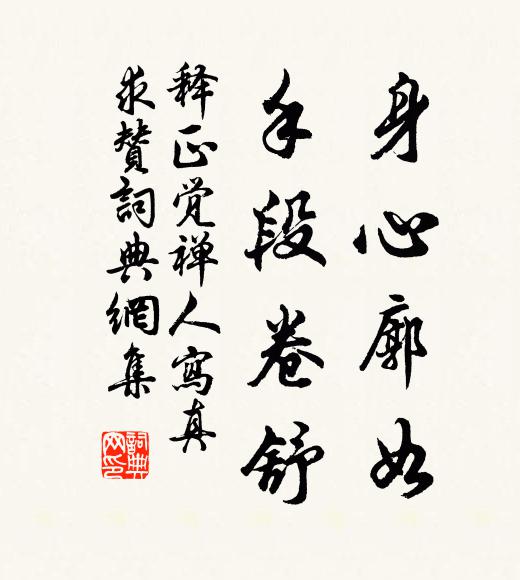 身心廓如
手段卷舒
释正觉禅人寫真
求贊詞典網集
詞典
网印